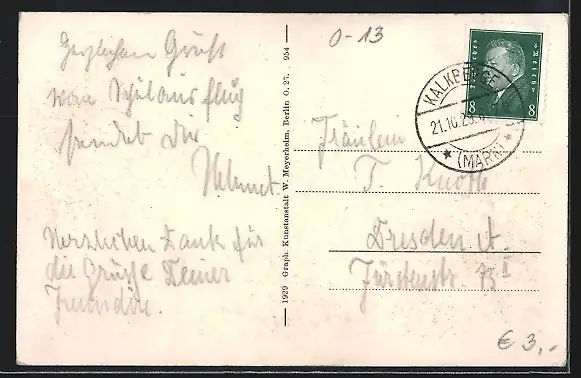 Herzlichen Gruß
vom Schulausflug
sendet Dir
Helmut.
Herzlichen Dank für
die Grüße Deiner
Freundin.
1929 Graph. Kunstanstalt W. Meyerheim, Berlin O. 27. 954
0-13
Deutsches Reich
8 8
KALKBERGE
21.10.29.
* (MARK) *
Fräulein
T. Knoth
Dresden A.
Fürstenstr. 73 II
€ 3,-